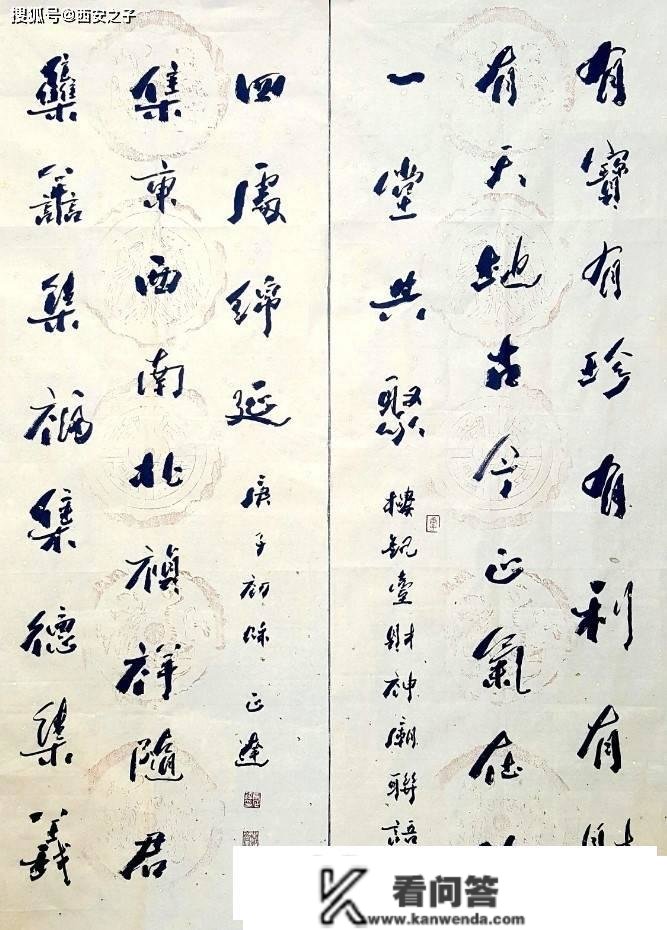 搜狐号@西安之子
有寶有珍有利有財
有天地古今正氣在
一堂共聚
樓觀臺財神廟聯語
集譱集福集德集義
集東西南北禎祥隨君
四處綿延
庚子初秋 正達
看问答
www.kanwenda.com